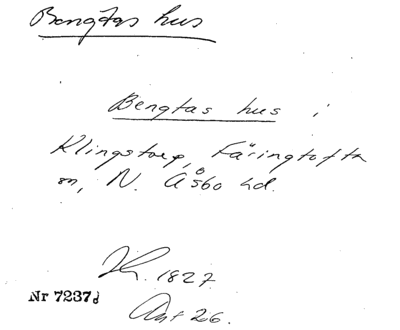 Bengtas hus
Bengtas hus i
Klingstorp, Färingtofta
sn, N. Åsbo hd.
1827
Nr 7237d
Ant 26.